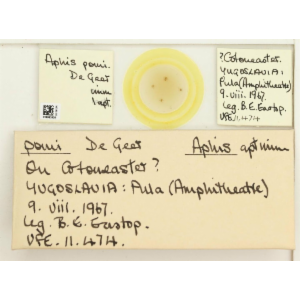 Aphis pomi.
De Geer
1 apt.
?Cotoneaster.
YUGOSLAVIA:
Pula (Amphitheatre)
9. viii. 1967.
leg. B. E. Eastop.
VFE. 11.474
pomi De Geer Aphis
On Cotoneaster?
YUGOSLAVIA: Pula (Amphitheatre)
9. viii. 1967.
leg. B. E. Eastop.
VFE. 11.474.